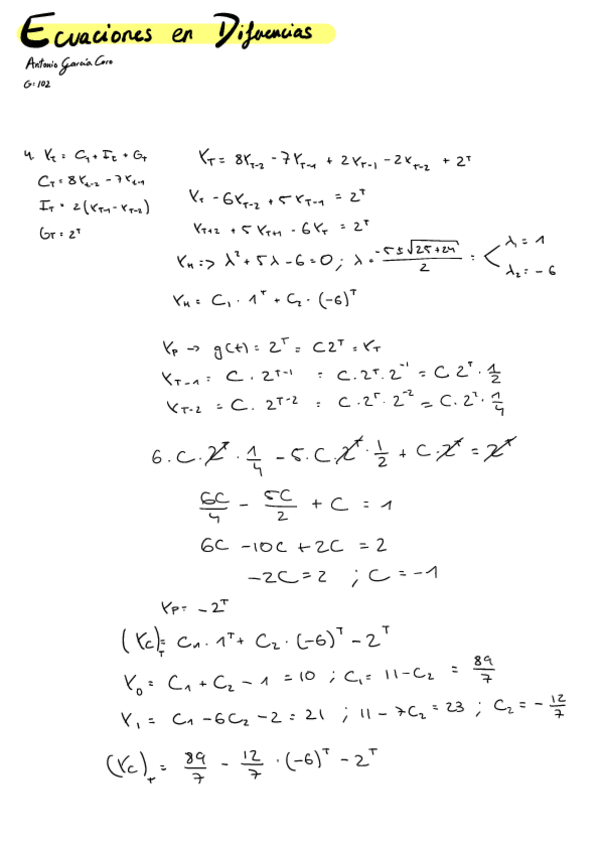 Ecuaciones en Diferencias
Antonio García Caro
G: 102
4. Y_t = C_t + I_t + G_T
Y_T = 8Y_{T-2} - 7Y_{T-1} + 2Y_{T-1} - 2Y_{T-2} + 2^T
C_T = 8Y_{t-2} - 7Y_{t-1}
Y_T - 6Y_{T-2} + 5Y_{T-1} = 2^T
I_T = 2(Y_{T-1} - Y_{T-2})
Y_{T+2} + 5Y_{T+1} - 6Y_T = 2^T
G_T = 2^T
Y_H => λ² + 5λ - 6 = 0 ; λ = (-5 ± √(25+24))/2 = < λ = 1
λ_2 = -6
Y_H = C_1 · 1^T + C_2 · (-6)^T
Y_P → g(t) = 2^T = C2^T = Y_T
Y_{T-1} = C · 2^{T-1} = C · 2^T · 2^{-1} = C 2^T · 1/2
Y_{T-2} = C · 2^{T-2} = C · 2^T · 2^{-2} = C · 2^T · 1/4
6 · C · 2^T · 1/4 - 5 · C · 2^T · 1/2 + C · 2^T = 2^T
6C/4 - 5C/2 + C = 1
6C - 10C + 2C = 2
-2C = 2 ; C = -1
Y_P = -2^T
(Y_C)_T = C_1 · 1^T + C_2 · (-6)^T - 2^T
Y_0 = C_1 + C_2 - 1 = 10 ; C_1 = 11 - C_2 = 89/7
Y_1 = C_1 - 6C_2 - 2 = 21 ; 11 - 7C_2 = 23 ; C_2 = - 12/7
(Y_C)_T = 89/7 - 12/7 · (-6)^T - 2^T